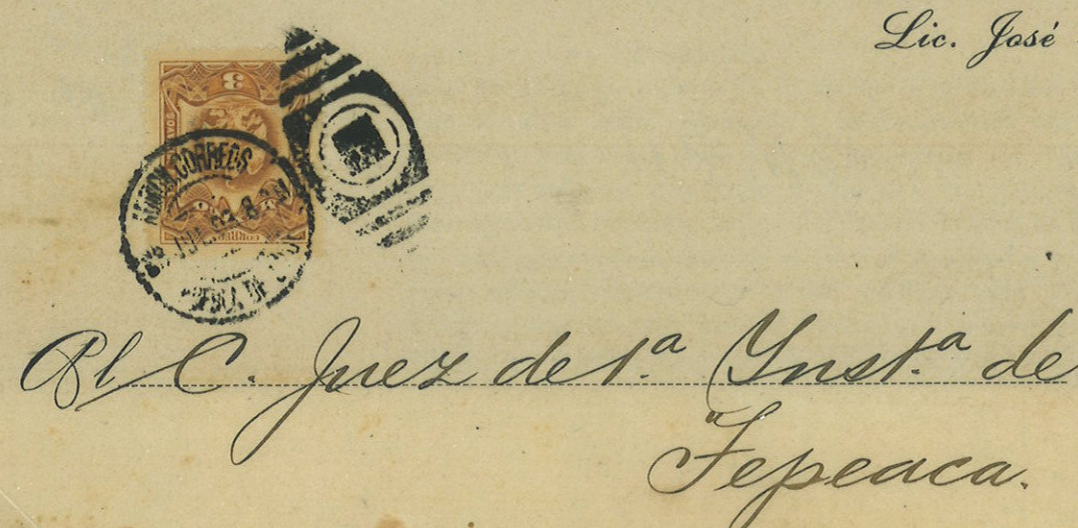 Lic. José
3
CORREOS
Al C. Juez de 1.ª Ynst.ª de
Tepeaca.